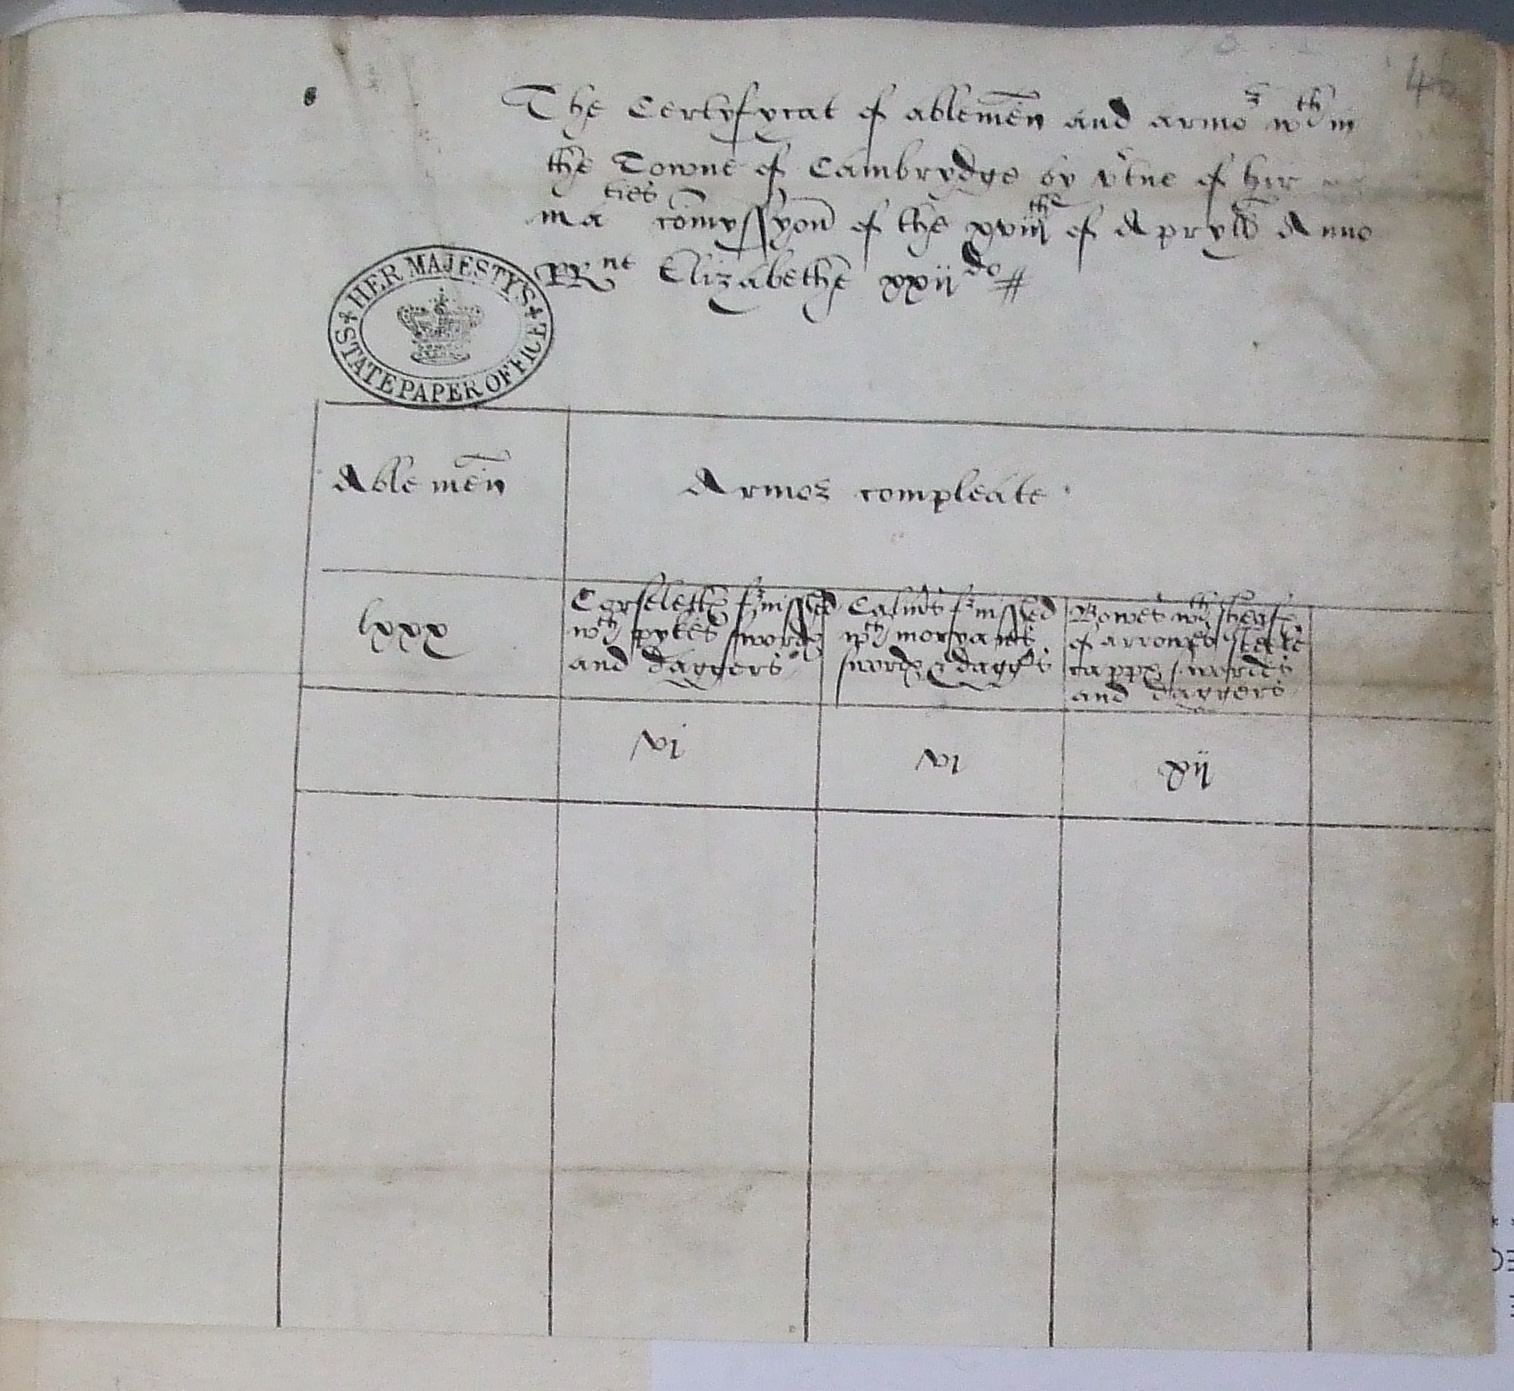 46
The Certyfycat of ablemen and armor wth in
the Towne of Cambrydge by vtue of hir
maties comyssyon of the xviijth of Apryll Anno
RRne Elizabethe xxijdo
HER MAJESTY'S STATE PAPER OFFICE
Able men
Armor compleate
lxxx
Corseletts furnisshed
wth pykes swords
and daggers
Calivrs furnisshed
wth moryans
swords & daggrs
Bowes wth sheafe
of arrowes steele
capps swordes
and daggers
vj
vj
xij